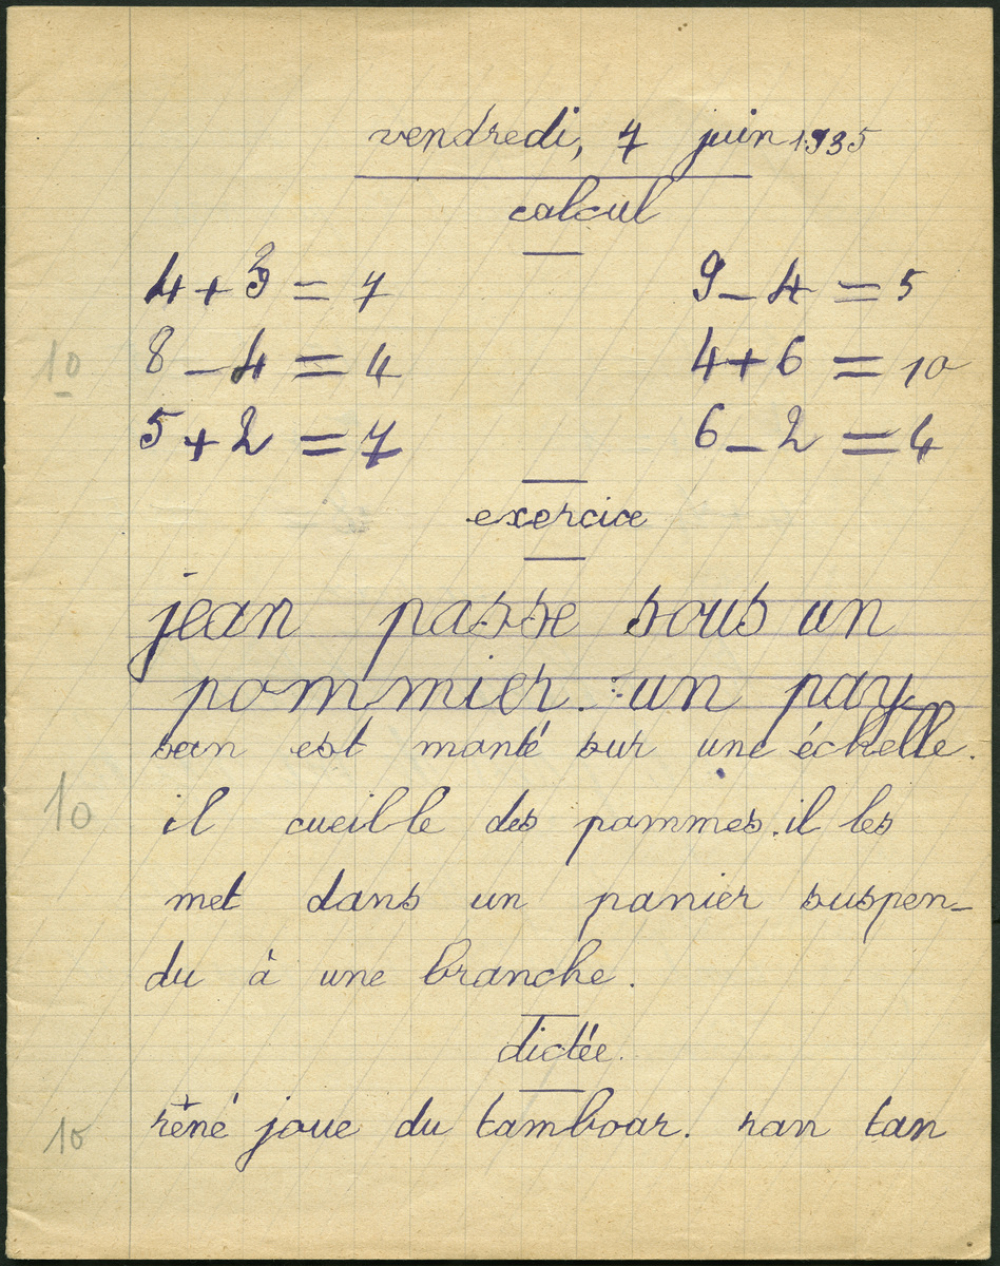 vendredi, 7 juin 1935
calcul
4 + 3 = 7 9 - 4 = 5
10 8 - 4 = 4 4 + 6 = 10
5 + 2 = 7 6 - 2 = 4
exercice
jean passe sous un
pommier. un pay
san est monté sur une échelle.
10 il cueille des pommes. il les
met dans un panier suspen-
du à une branche.
dictée.
10 réné joue du tamboar. ran tan